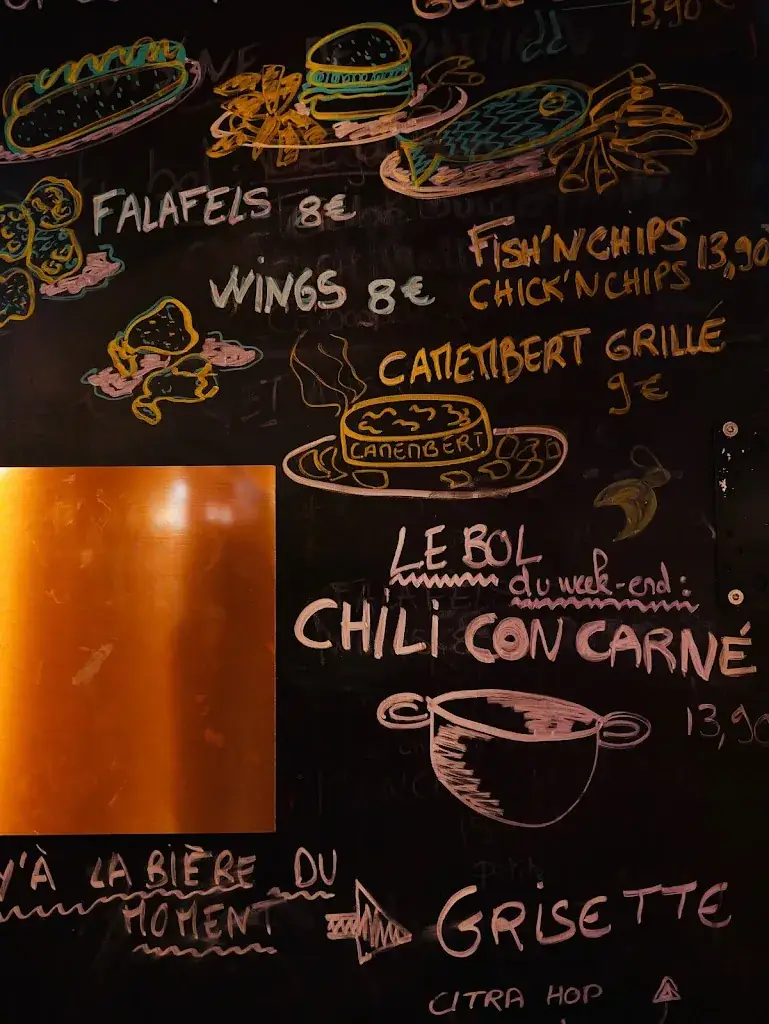 13,90
FALAFELS 8€
FISH'N'CHIPS 13,90
CHICK'N'CHIPS
WINGS 8€
CAMEMBERT GRILLÉ
9€
CAMEMBERT
LE BOL
du week-end:
CHILI CON CARNÉ
13,90
Y'À LA BIÈRE DU
MOMENT
GRISETTE
CITRA HOP